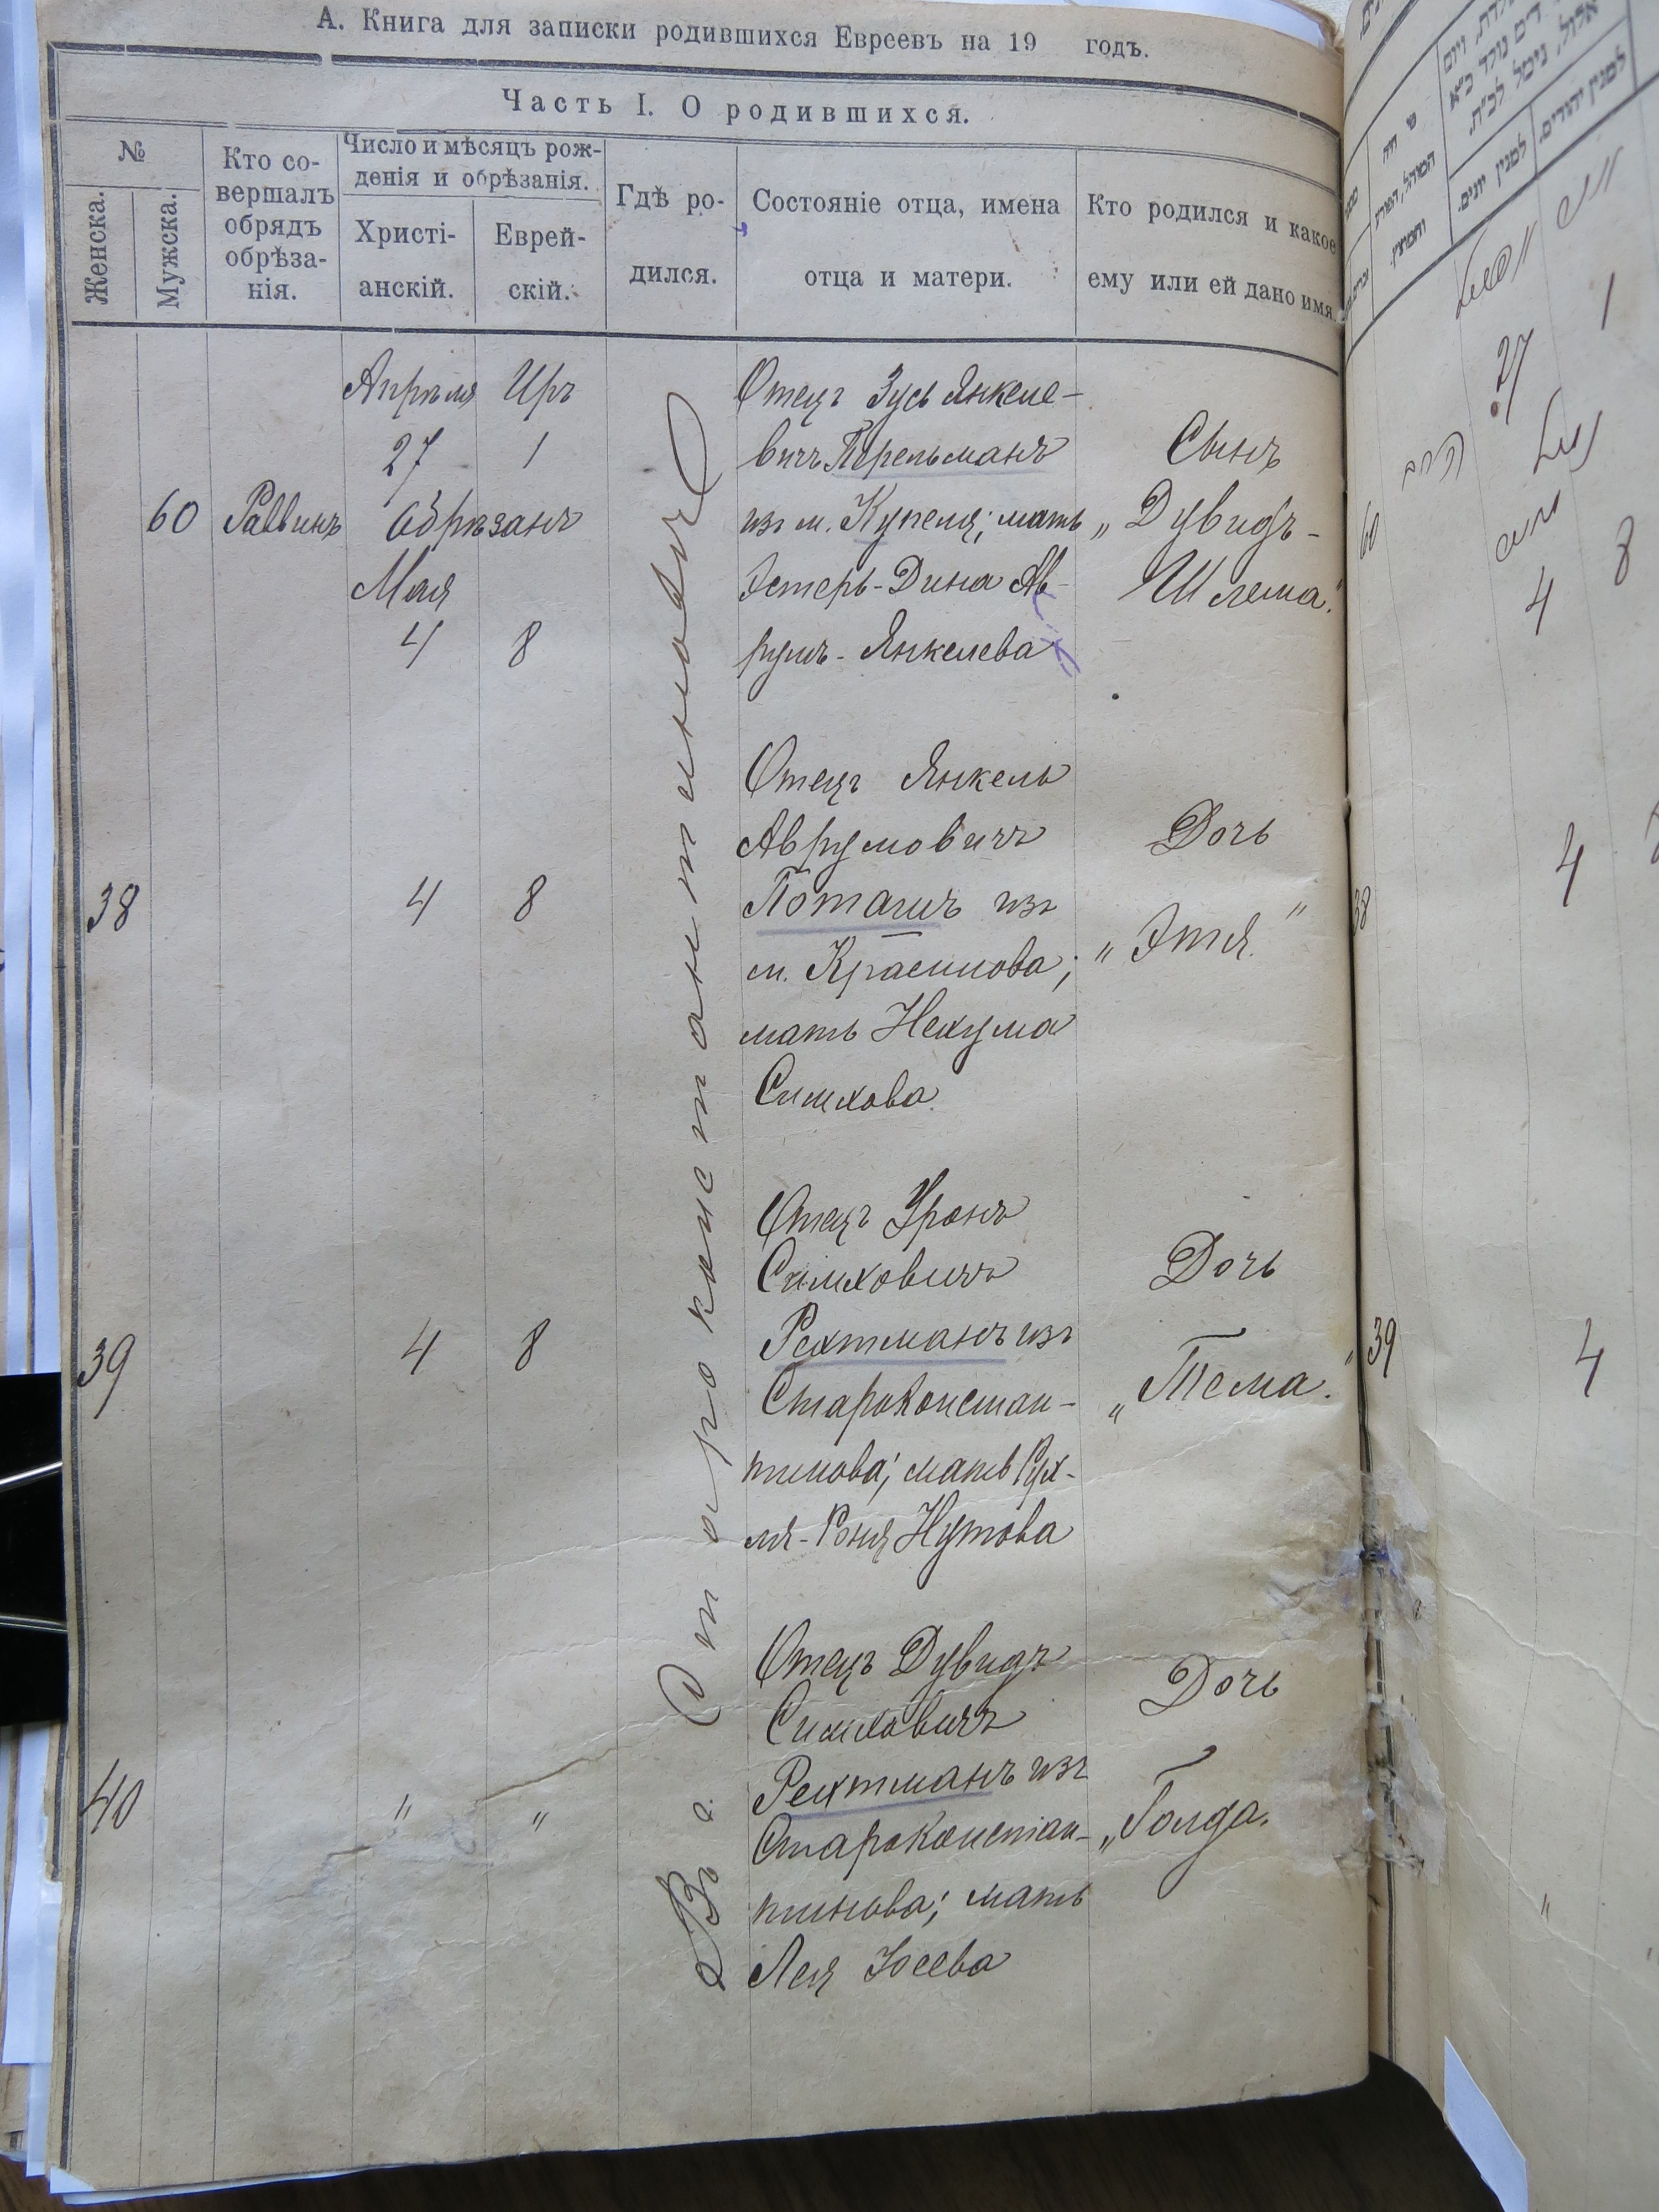 А. Книга для записки родившихся Евреевъ на 19 годъ.
Часть I. О родившихся.
№
Женска.
Мужска.
Кто со-
вершалъ
обрядъ
обрѣза-
нія.
Число и мѣсяцъ рож-
денія и обрѣзанія.
Христі-
анскій.
Еврей-
скій.
Гдѣ ро-
дился.
Состояніе отца, имена
отца и матери.
Кто родился и какое
ему или ей дано имя.
Въ г. Староконстантиновѣ
Апрѣля Иръ
27 1
60 Раввинъ обрѣзанъ
Мая
4 8
Отецъ Зусь Янкеле-
вичъ Перельманъ
изъ м. Купеля; мать
Эстеръ-Дина Ав-
румъ-Янкелева
Сынъ
„Дувидъ-
Шлема."
38 4 8
Отецъ Янкель
Аврумовичъ
Поташъ изъ
м. Красилова;
мать Нехума
Симхова
Дочь
„Этя."
39 4 8
Отецъ Уронъ
Симховичъ
Рехтманъ изъ
Староконстан-
тинова; мать Рух-
ля-Роня Нутова
Дочь
„Тема."
40 " "
Отецъ Дувидъ
Симховичъ
Рехтманъ изъ
Староконстан-
тинова; мать
Лея Іосева
Дочь
„Голда.
27 1
60
4 8
38 4
39 4
"